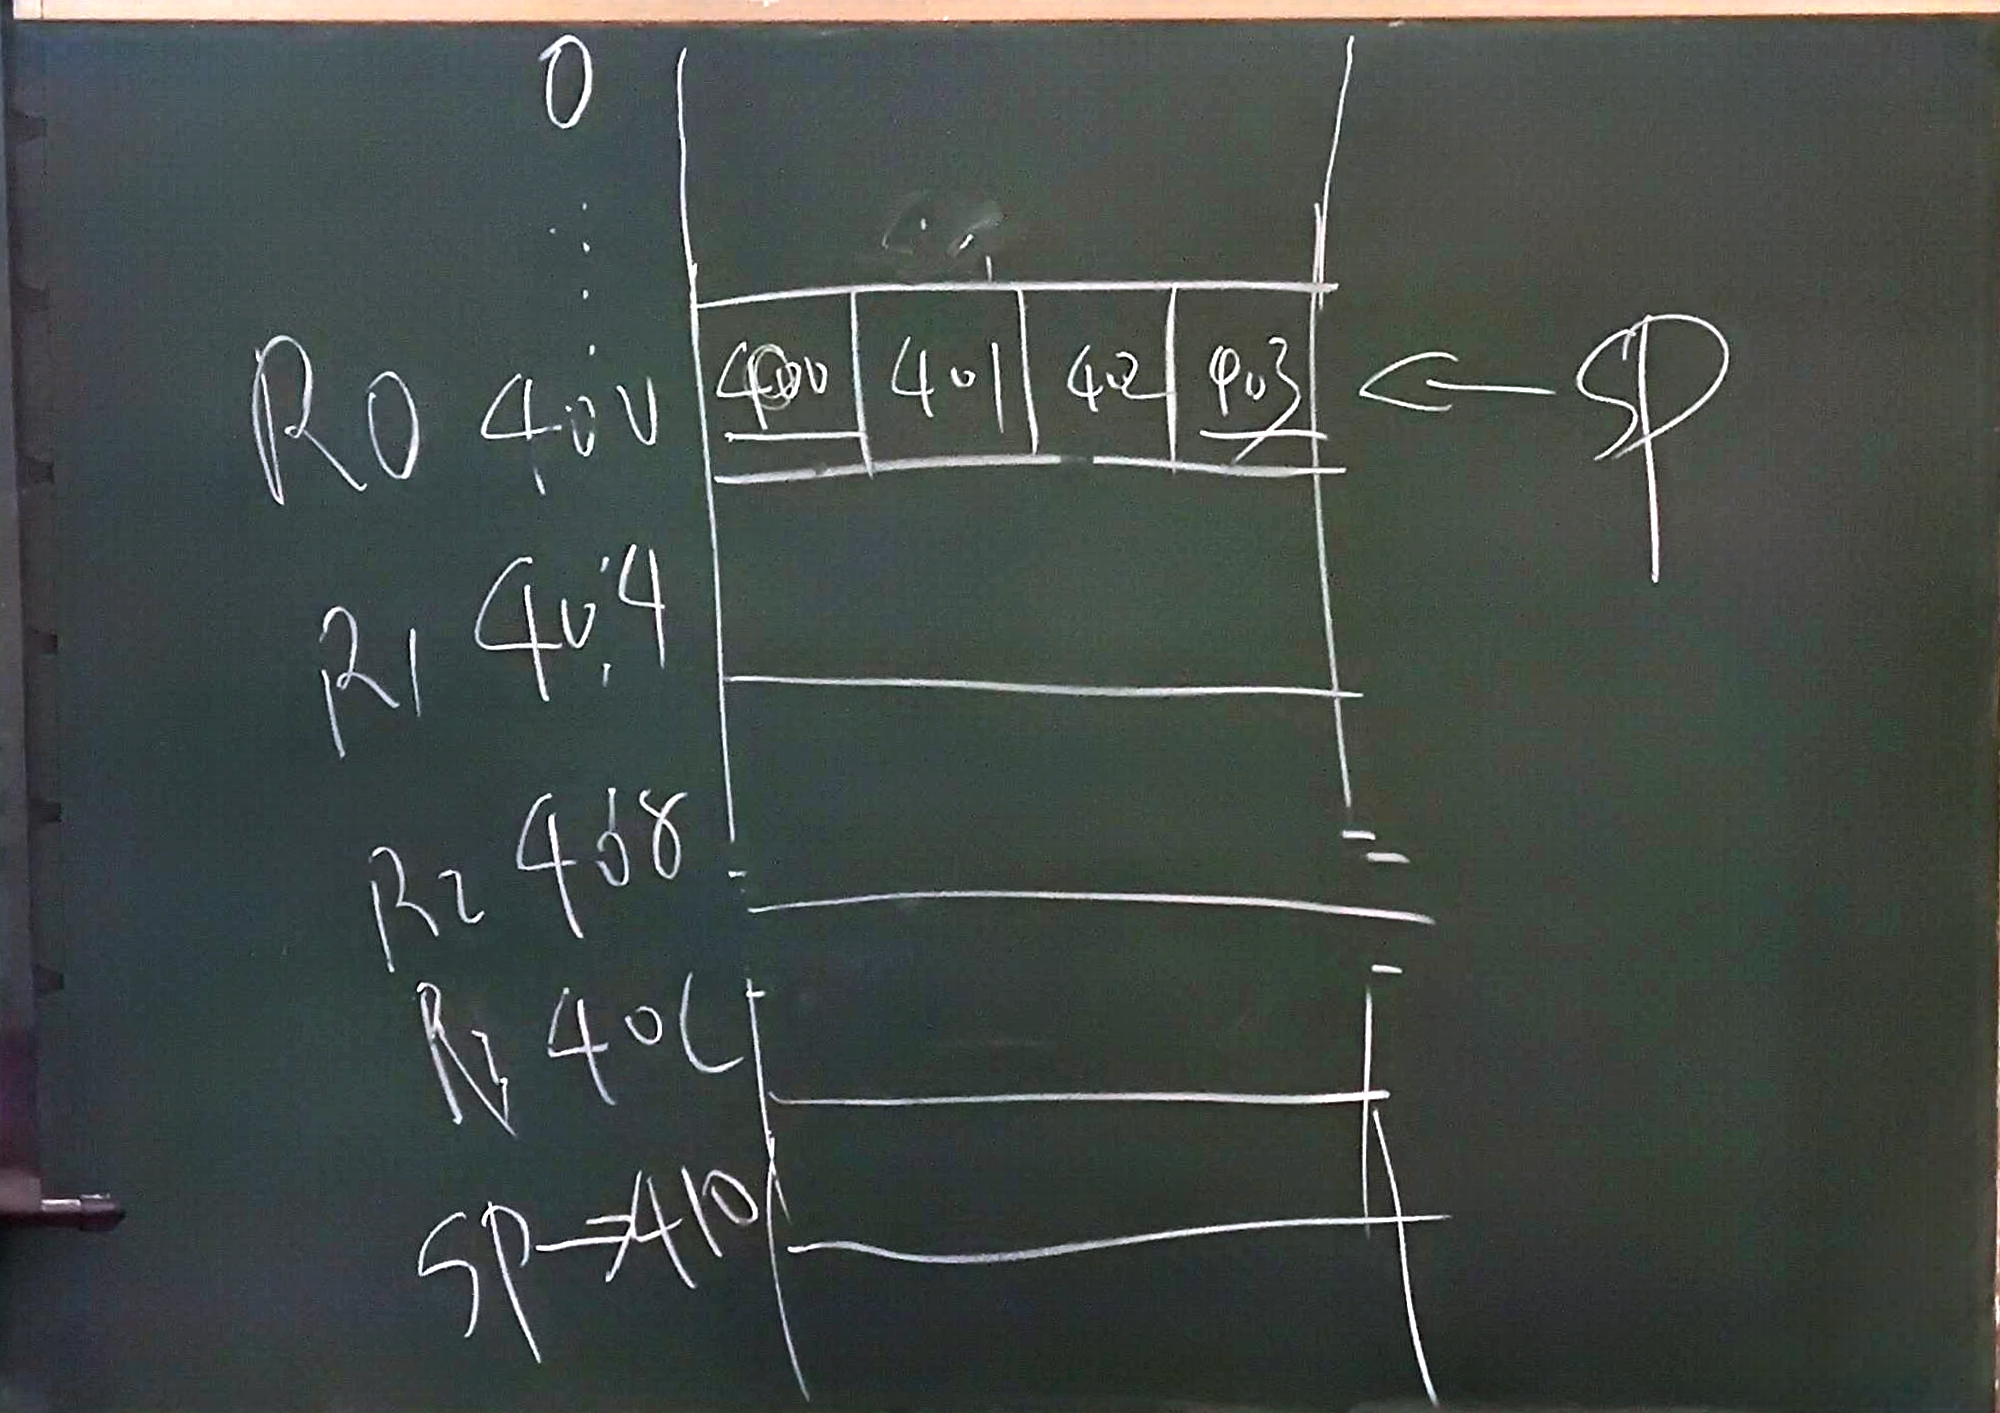 0
R0 400 400 401 402 403 ← SP
R1 404
R2 408
R3 40C
SP→410